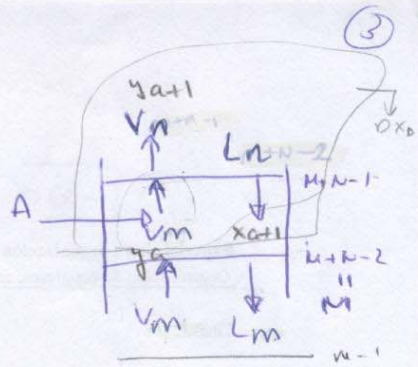 3
ya+1
Vn
Ln
DxD
A
M+N-1
Vm
xa+1
ya
M+N-2
Vm
Lm